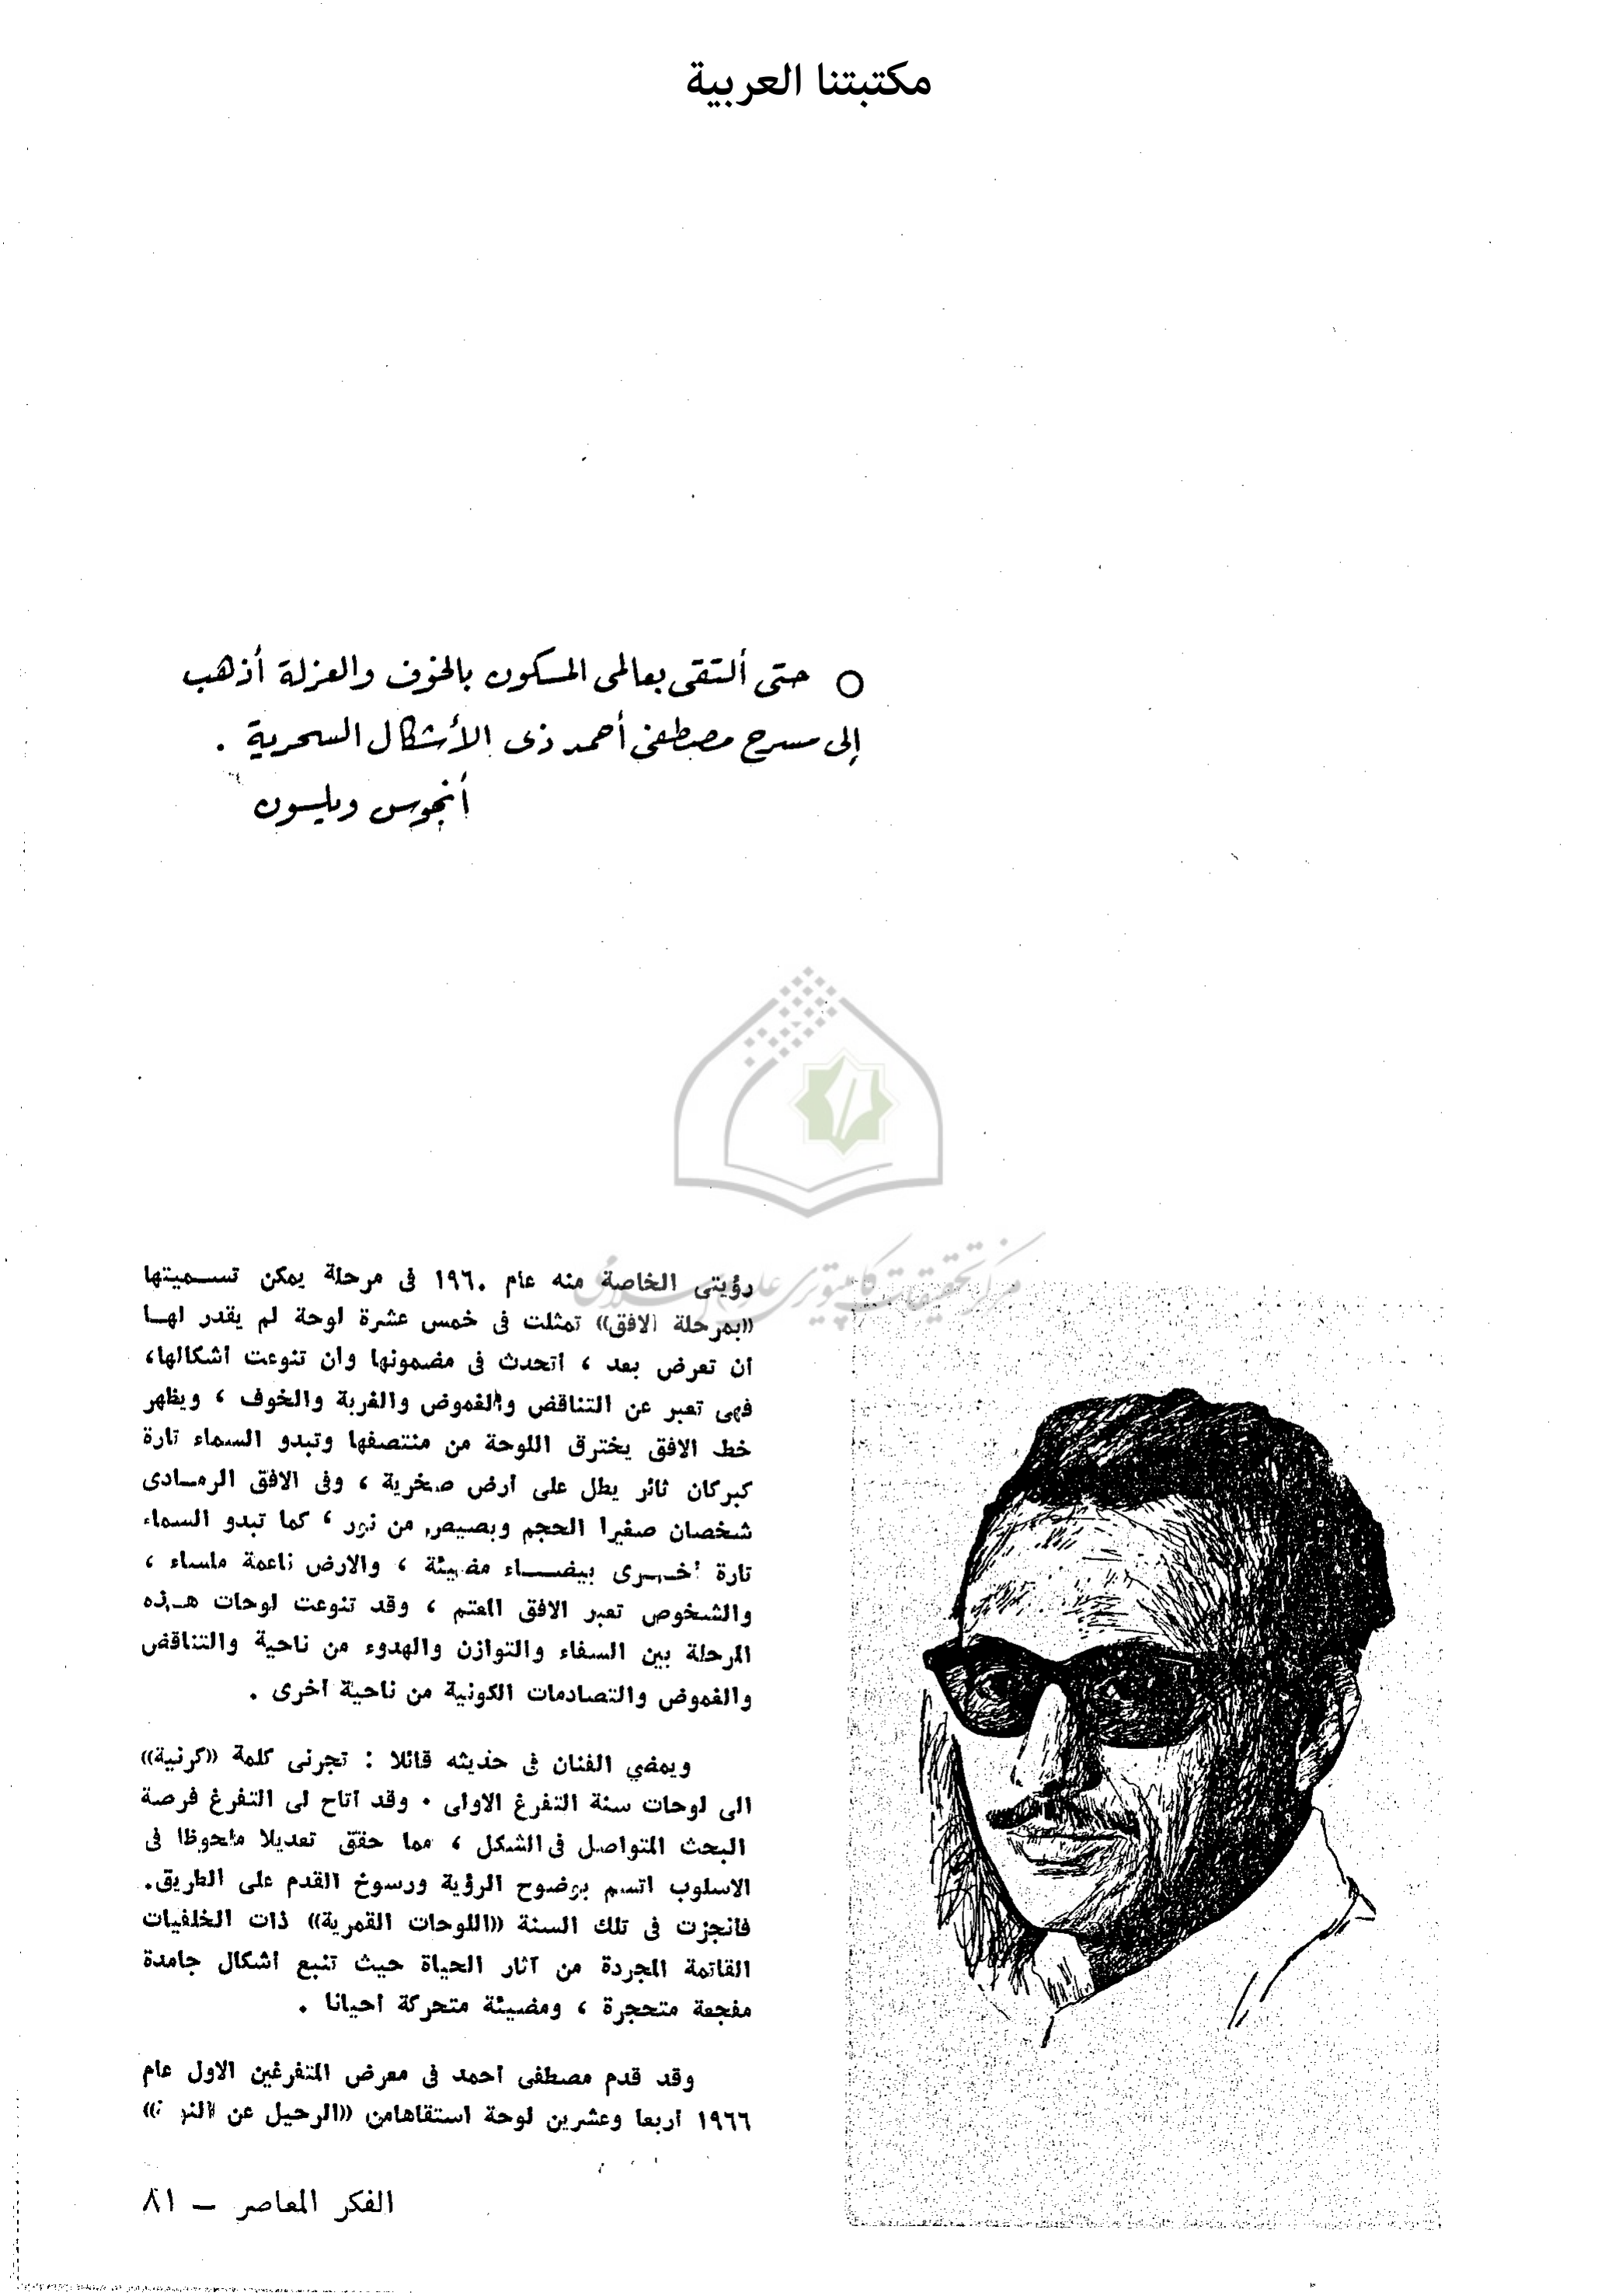 مكتبتنا العربية
○ حتى ألتقى بعالمى المسكون بالخوف والعزلة أذهب
إلى مسرح مصطفى أحمد ذى الأشكال السحرية .
أنجوس ويلسون
مركز تحقيقات كامپيوترى علوم اسلامى
رؤيتى الخاصة منه عام ١٩٦٠ فى مرحلة يمكن تسـميتها
((بمرحلة الافق)) تمثلت فى خمس عشرة لوحة لم يقدر لهـا
ان تعرض بعد ، اتحدث فى مضمونها وان تنوعت اشكالها،
فهى تعبر عن التناقض والغموض والغربة والخوف ، ويظهر
خط الافق يخترق اللوحة من منتصفها وتبدو السماء تارة
كبركان ثائر يطل على ارض صخرية ، وفى الافق الرمـادى
شخصان صغيرا الحجم وبصيص من نور ، كما تبدو السماء
تارة اخـرى بيضـاء مضيئة ، والارض ناعمة ملساء ،
والشخوص تعبر الافق المعتم ، وقد تنوعت لوحات هـذه
المرحلة بين السفاء والتوازن والهدوء من ناحية والتناقض
والغموض والتصادمات الكونية من ناحية اخرى .
ويمضي الفنان فى حديثه قائلا : تجرنى كلمة ((كرنية))
الى لوحات سنة التفرغ الاولى . وقد اتاح لى التفرغ فرصة
البحث المتواصل فى الشكل ، مما حقق تعديلا ملحوظا فى
الاسلوب اتسم بوضوح الرؤية ورسوخ القدم على الطريق.
فانجزت فى تلك السنة ((اللوحات القمرية)) ذات الخلفيات
القاتمة المجردة من آثار الحياة حيث تنبع اشكال جامدة
مفجعة متحجرة ، ومضيئة متحركة احيانا .
وقد قدم مصطفى احمد فى معرض المتفرغين الاول عام
١٩٦٦ اربعا وعشرين لوحة استقاهامن ((الرحيل عن
الفكر المعاصر – ٨١